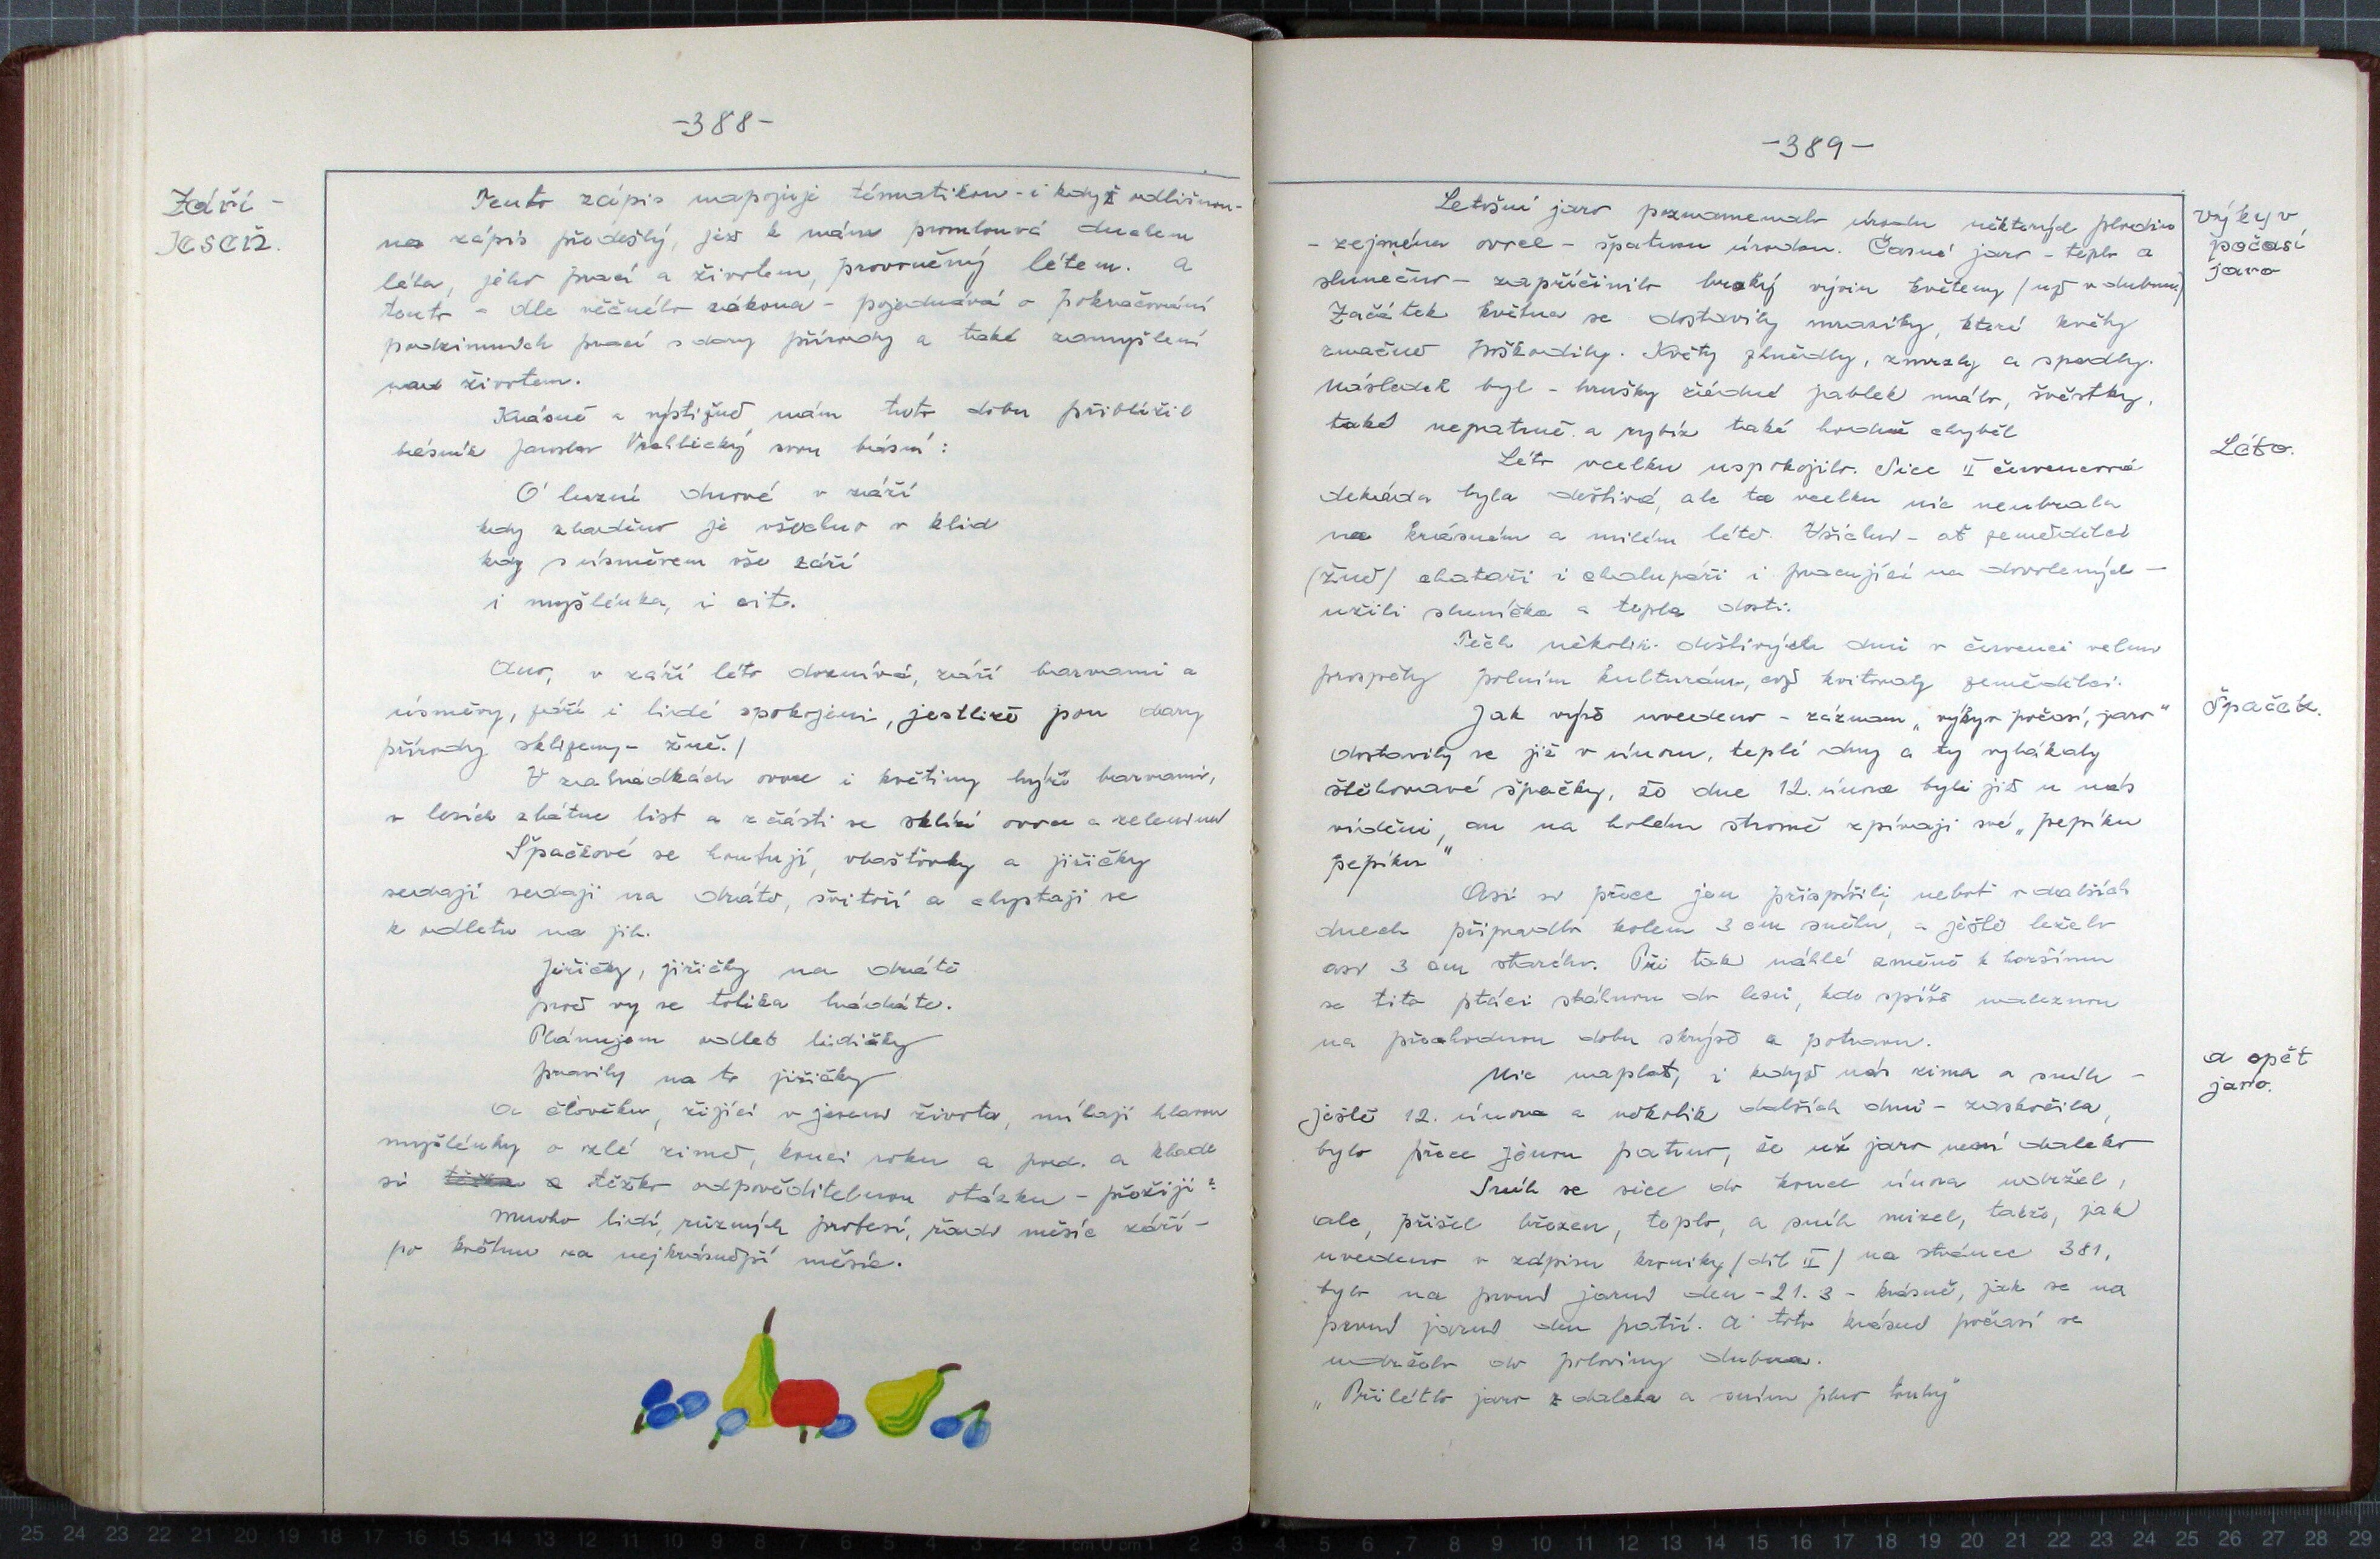 -388-
Září -
Jeseň.
Tento zápis napojuje tématikou - i když odlišnou -
na zápis předešlý, jež k nám promlouvá duchem
léta, jeho prací a životem, provoněný létem. A
tento - dle věčného zákona - pojednává o pokračování
podzimních prací s dary přírody a také zamyšlení
nad životem.
Krásně a výstižně nám tuto dobu přiblížil
básník Jaroslav Vrchlický svou básní:
Ó luzní dnové v září
kdy zhaděno je všechno v klid
kdy s úsměvem vše září
i myšlénka, i cit.
Ano, v září léto doznívá, září barvami a
úsměvy, září i lidé spokojeni, jestliže jsou dary
přírody sklizeny - žně./
V zahrádkách ovoce i květiny hýří barvami,
v lesích zlátne list a z části se sklízí ovoce a zelenina
Špačkové se houfují, vlaštovky a jiřičky
sedají sedají na drátě, švitoří a chystají se
k odletu na jih.
Jiřičky, jiřičky na drátě
proč vy se tolika hádáte.
Plánujem odlet lidičky
pravily na to jiřičky
A člověku, žijící v jeseni života, míhají hlavou
myšlénky o zlé zimě, konci roku a pod. a klade
si těžko odpověditelnou otázku - přežiji?
Mnoho lidí, různých profesí, řadí měsíc září -
po květnu za nejkrásnější měsíc.
-389-
Letošní jaro poznamenalo úrodu některých plodin
- zejména ovoce - špatnou úrodou. Časné jaro - teplo a
slunečno - zapříčinilo brzký vývin květeny /už v dubnu/
Začátek května se dostavily mrazíky, které květy
značně poškodily. Květy zhnědly, zmrzly a spadly.
Následek byl - hrušky žádné jablek málo, švestky,
také nepatrně a rybíz také hodně chyběl
výkyv
počasí
jaro
Léto vcelku uspokojilo. Sice II červencová
dekáda byla deštivá, ale ta vcelku nic neubrala
na krásném a milém létě. Všichni - ať zemědělci
(žně) chataři i chalupáři i pracující na dovolených -
užili sluníčka a tepla dosti.
Léto.
Těch několik deštivých dní v červenci velmi
prospěly polním kulturám, což kvitovaly zemědělci.
Jak výše uvedeno - záznam "výkyv počasí, jaro"
dostavily se již v únoru, teplé dny a ty vylákaly
stěhovavé špačky, že dne 12. února byli již u nás
viděni, an na holém stromě zpívají své "pepíku
pepíku"
Špaček.
Asi si přece jen přispíšili, neboť v dalších
dnech připadlo kolem 3 cm sněhu, a ještě leželo
asi 3 cm starého. Při tak náhlé změně k horšímu
se tito ptáci stáhnou do lesů, kde spíše naleznou
na přechodnou dobu skrýše a potravu.
Nic naplat, i když nás zima a sníh -
ještě 12. února a několik dalších dnů - zaskočila,
bylo přece jenom patrno, že už jaro není daleko
a opět
jaro.
Sníh se sice do konce února udržel,
ale, přišel březen, teplo, a sníh mizel, takže, jak
uvedeno v zápisu kroniky /díl II/ na stránce 381,
bylo na první jarní den - 21. 3 - krásně, jak se na
první jarní den patří. A toto krásné počasí se
udrželo do poloviny dubna.
"Přilétlo jaro z daleka a sním plno touhy"